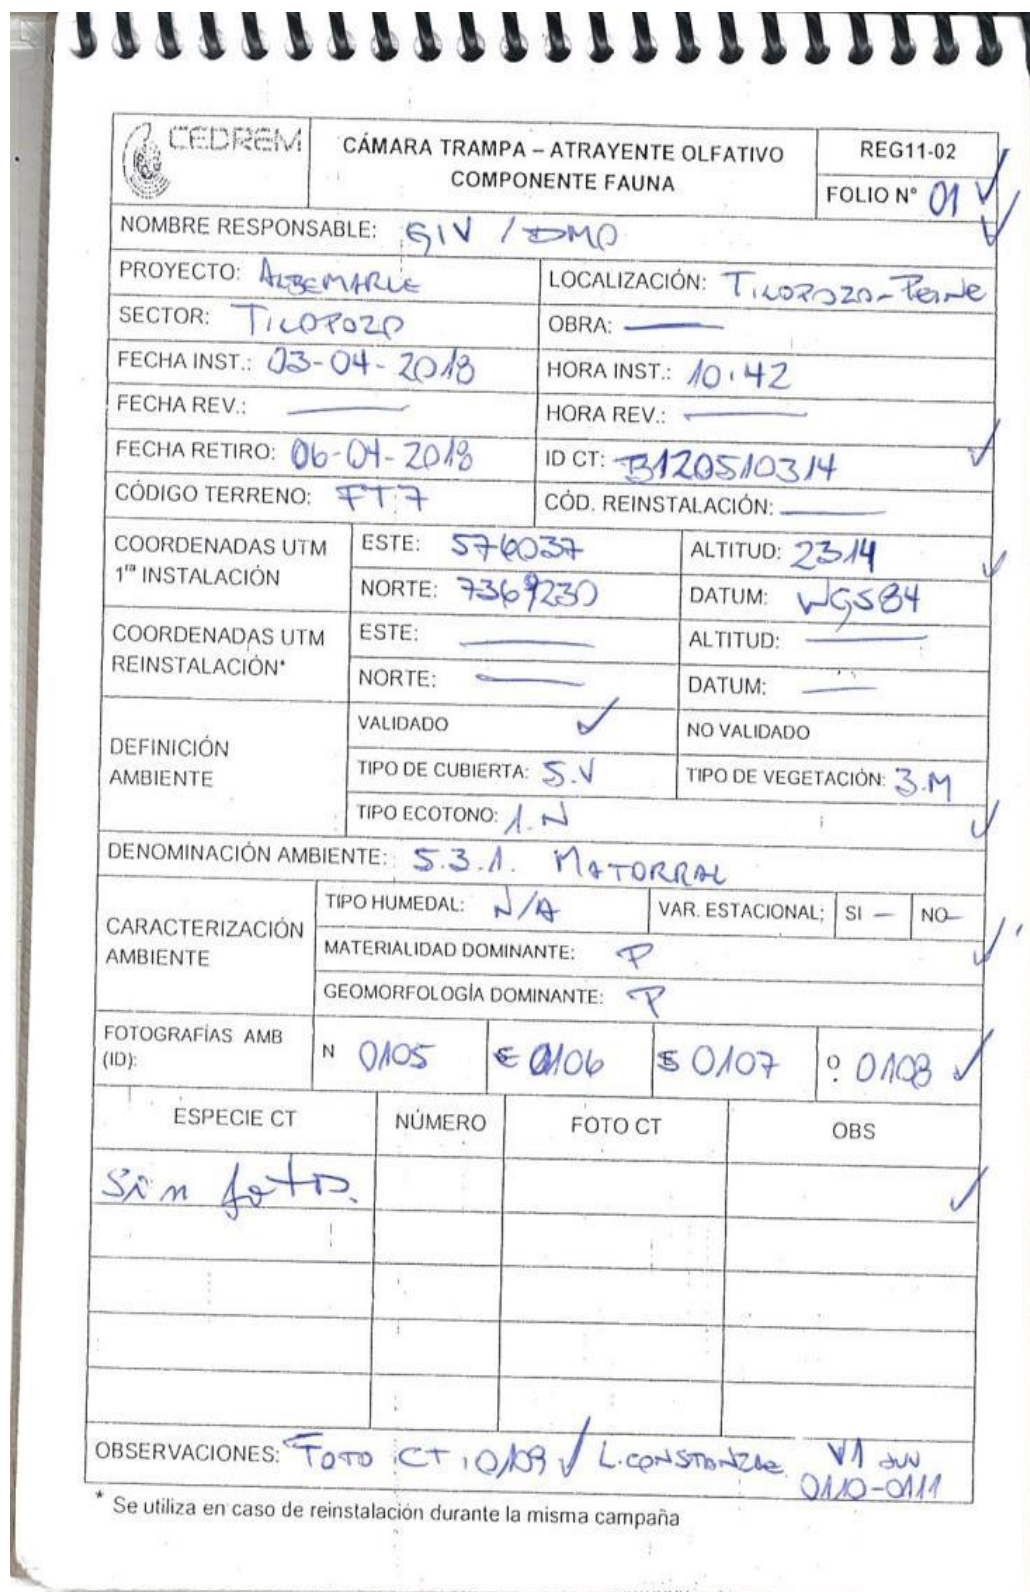 CEDREM
CÁMARA TRAMPA – ATRAYENTE OLFATIVO
COMPONENTE FAUNA
REG11-02
FOLIO N° 01 ✓
NOMBRE RESPONSABLE: GIV / DMO
PROYECTO: ALBEMARLE LOCALIZACIÓN: TILOPOZO-Peine
SECTOR: TILOPOZO OBRA: —
FECHA INST.: 03-04-2018 HORA INST.: 10:42
FECHA REV.: — HORA REV.: —
FECHA RETIRO: 06-04-2018 ID CT: B120510314
CÓDIGO TERRENO: FT7 CÓD. REINSTALACIÓN: —
COORDENADAS UTM
1ra INSTALACIÓN
ESTE: 576037 ALTITUD: 2314
NORTE: 7369230 DATUM: WGS84
COORDENADAS UTM
REINSTALACIÓN*
ESTE: — ALTITUD: —
NORTE: — DATUM: —
DEFINICIÓN
AMBIENTE
VALIDADO ✓ NO VALIDADO
TIPO DE CUBIERTA: 5.V TIPO DE VEGETACIÓN: 3.M
TIPO ECOTONO: 1.N
DENOMINACIÓN AMBIENTE: 5.3.1. MATORRAL
CARACTERIZACIÓN
AMBIENTE
TIPO HUMEDAL: N/A VAR. ESTACIONAL; SI — NO —
MATERIALIDAD DOMINANTE: P
GEOMORFOLOGÍA DOMINANTE: P
FOTOGRAFÍAS AMB
(ID):
N 0105 E 0106 S 0107 O: 0108 ✓
ESPECIE CT NÚMERO FOTO CT OBS
Sin foto.
OBSERVACIONES: FOTO CT: 0109 ✓ L.CONSTANZAE V1 JUV
0110-0111
* Se utiliza en caso de reinstalación durante la misma campaña